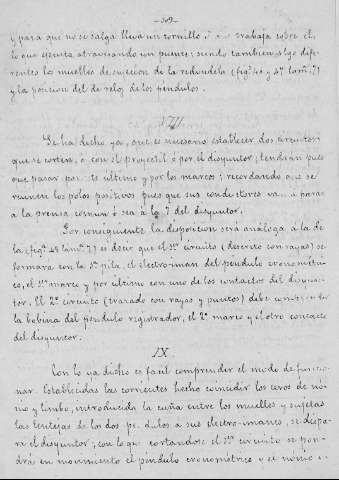 -309-
y para que no se salga lleva un tornillo que trabaja sobre el,
lo que ejecuta atravesando un puente; siendo tambien algo dife-
rentes los muelles de sujecion de la redondela (figs 46 y 47 lama 7)
y la posicion del de reloj de los péndulos.
VIII.
Se ha dicho ya, que es necesario establecer dos circuitos
que se corten, ó con el proyectil ó por el disyuntor; tendrán pues
que pasar por este ultimo y por los marcos; recordando que se
reunen los polos positivos pues que sus conductores van á parar
á la prensa comun ó sea á la del disyuntor.
Por consiguiente la disposicion será análoga á la de
la (figa 48 lama 7) es decir que el 1er circuito (descrito con rayas) se
formara con la 1a pila, el electro-iman del péndulo cronométri-
co, el 1er marco y por ultimo con uno de los contactos del disyun-
tor. El 2o circuito (trazado con rayas y puntos) debe comprender
la bobina del péndulo registrador, el 2o marco y el otro contacto
del disyuntor.
IX.
Con lo ya dicho es facil comprender el modo de funcio-
nar. Establecidas las corrientes hecho coincidir los ceros de nó-
nio y limbo, introducida la cuña entre los muelles y sujetas
las lentejas de los dos péndulos á sus electro-imanes, se dispa-
ra el disyuntor; con lo que cortandose el 1er circuito se pon-
drá en movimiento el péndulo cronométrico y su nónio é-